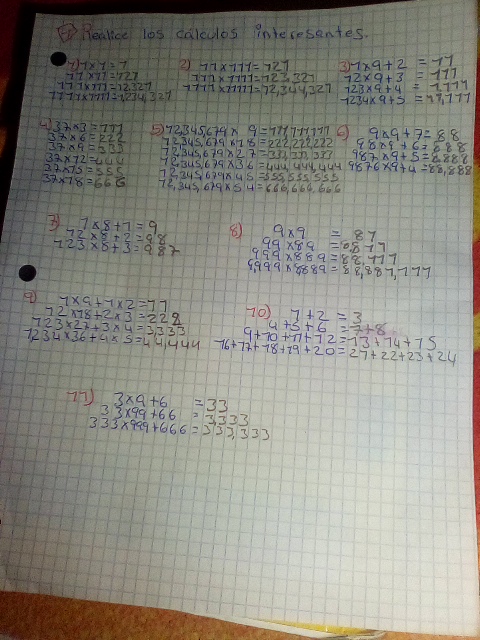 Realice los cálculos interesantes.
1) 1×1=1
11×11=121
111×111=12321
1111×1111=1234,321
2) 11×111=121
111×1111=123,321
1111×11111=12,344,321
3) 1×9+2=11
12×9+3=111
123×9+4=1,111
1234×9+5=11,111
4) 37×3=111
37×6=222
37×9=333
37×12=444
37×15=555
37×18=666
5) 12,345,679×9=111,111,111
12,345,679×18=222,222,222
12,345,679×27=333,333,333
12,345,679×36=444,444,444
12,345,679×45=555,555,555
12,345,679×54=666,666,666
6) 9×9+7=88
98×9+6=888
987×9+5=8,888
9876×9+4=88,888
7) 1×8+1=9
12×8+2=98
123×8+3=987
8) 9×9=81
99×89=8,811
999×889=88,111
9,999×8889=88,881,111
9) 1×9+1×2=11
12×18+2×3=222
123×27+3×4=3,333
1234×36+4×5=44,444
10) 1+2=3
4+5+6=7+8
9+10+11+12=13+14+15
16+17+18+19+20=21+22+23+24
11) 3×9+6=33
33×99+66=3,333
333×999+666=333,333